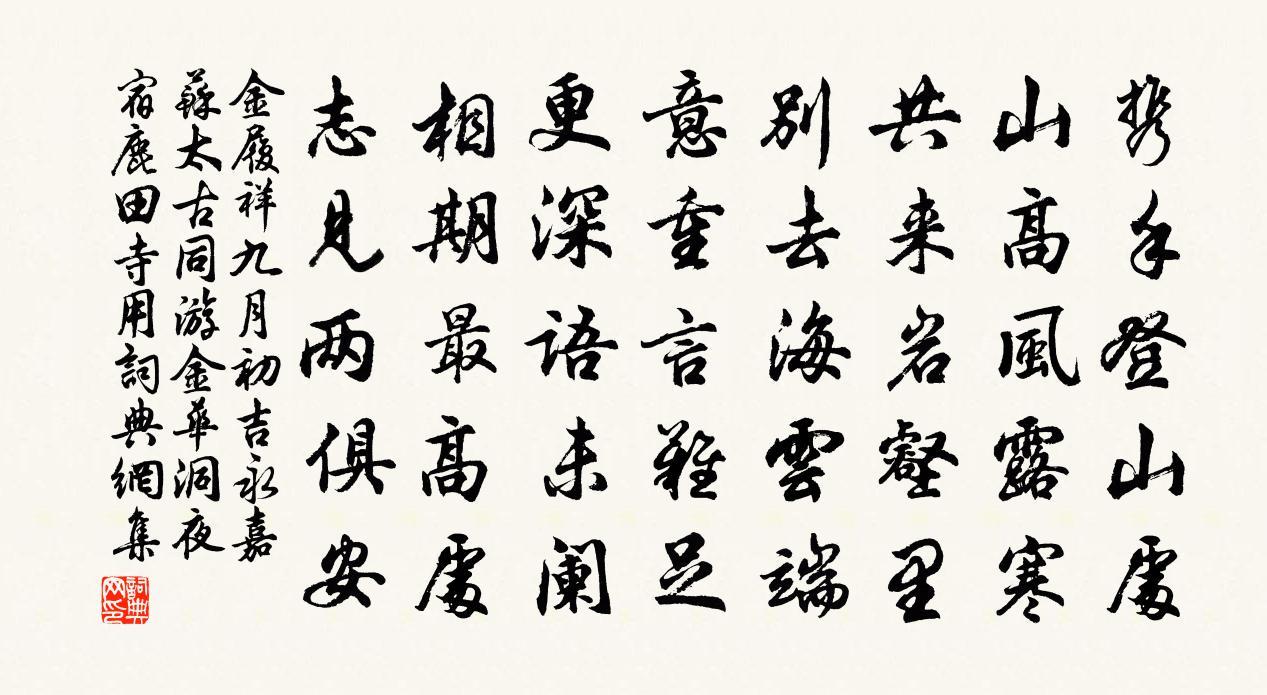 携手登山處
山高風露寒
共来岩壑里
別去海雲端
意重言難足
更深語未阑
相期最高處
志見两俱安
金履祥九月初吉永嘉
蘇太古同游金華洞夜
宿鹿田寺用詞典網集
詞典
网印